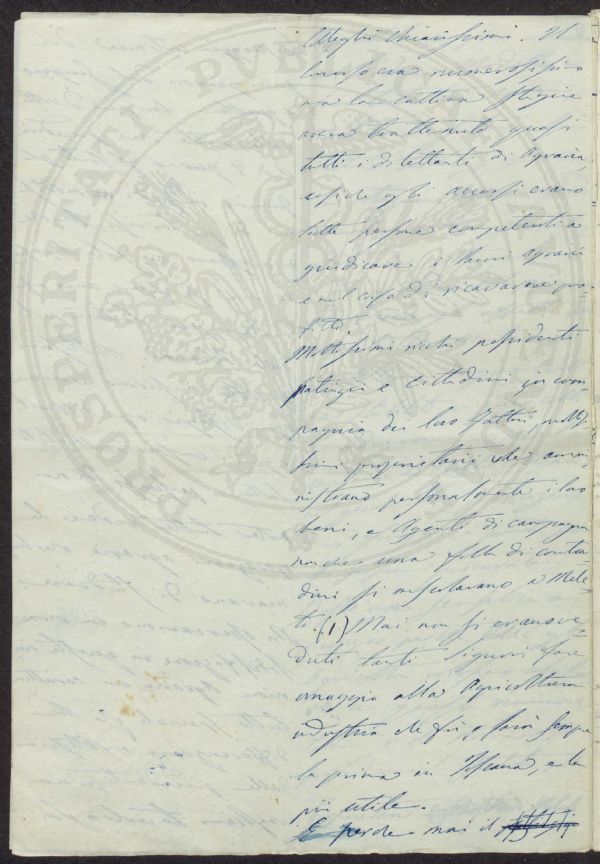 Colleghi chiarissimi. Il
concorso era numerosissimo
ma la cattiva stagione
aveva trattenuto quasi
tutti i dilettanti di Agraria,
cosiche gli accorsi erano
tutte persone competenti a
giudicare i lavori agrarii
e nel caso di ricavarne pro-
fitto.
Moltissimi ricchi possidenti
patrizii e cittadini in com
pagnia dei loro Fattori, moltis
simi proprietarii che ammi
nistrano personalmente i loro
beni, e Agenti di campagna
nonche una folla di conta
dini si mescolavano a Mele
to. (1) Mai non si eran ve-
duti tanti Signori fare
omaggio alla Agricoltura
industria che fù, e sarà sempre
la prima in Toscana, e la
più utile.
E perche mai il
PROSPERITATI PVBLICAE